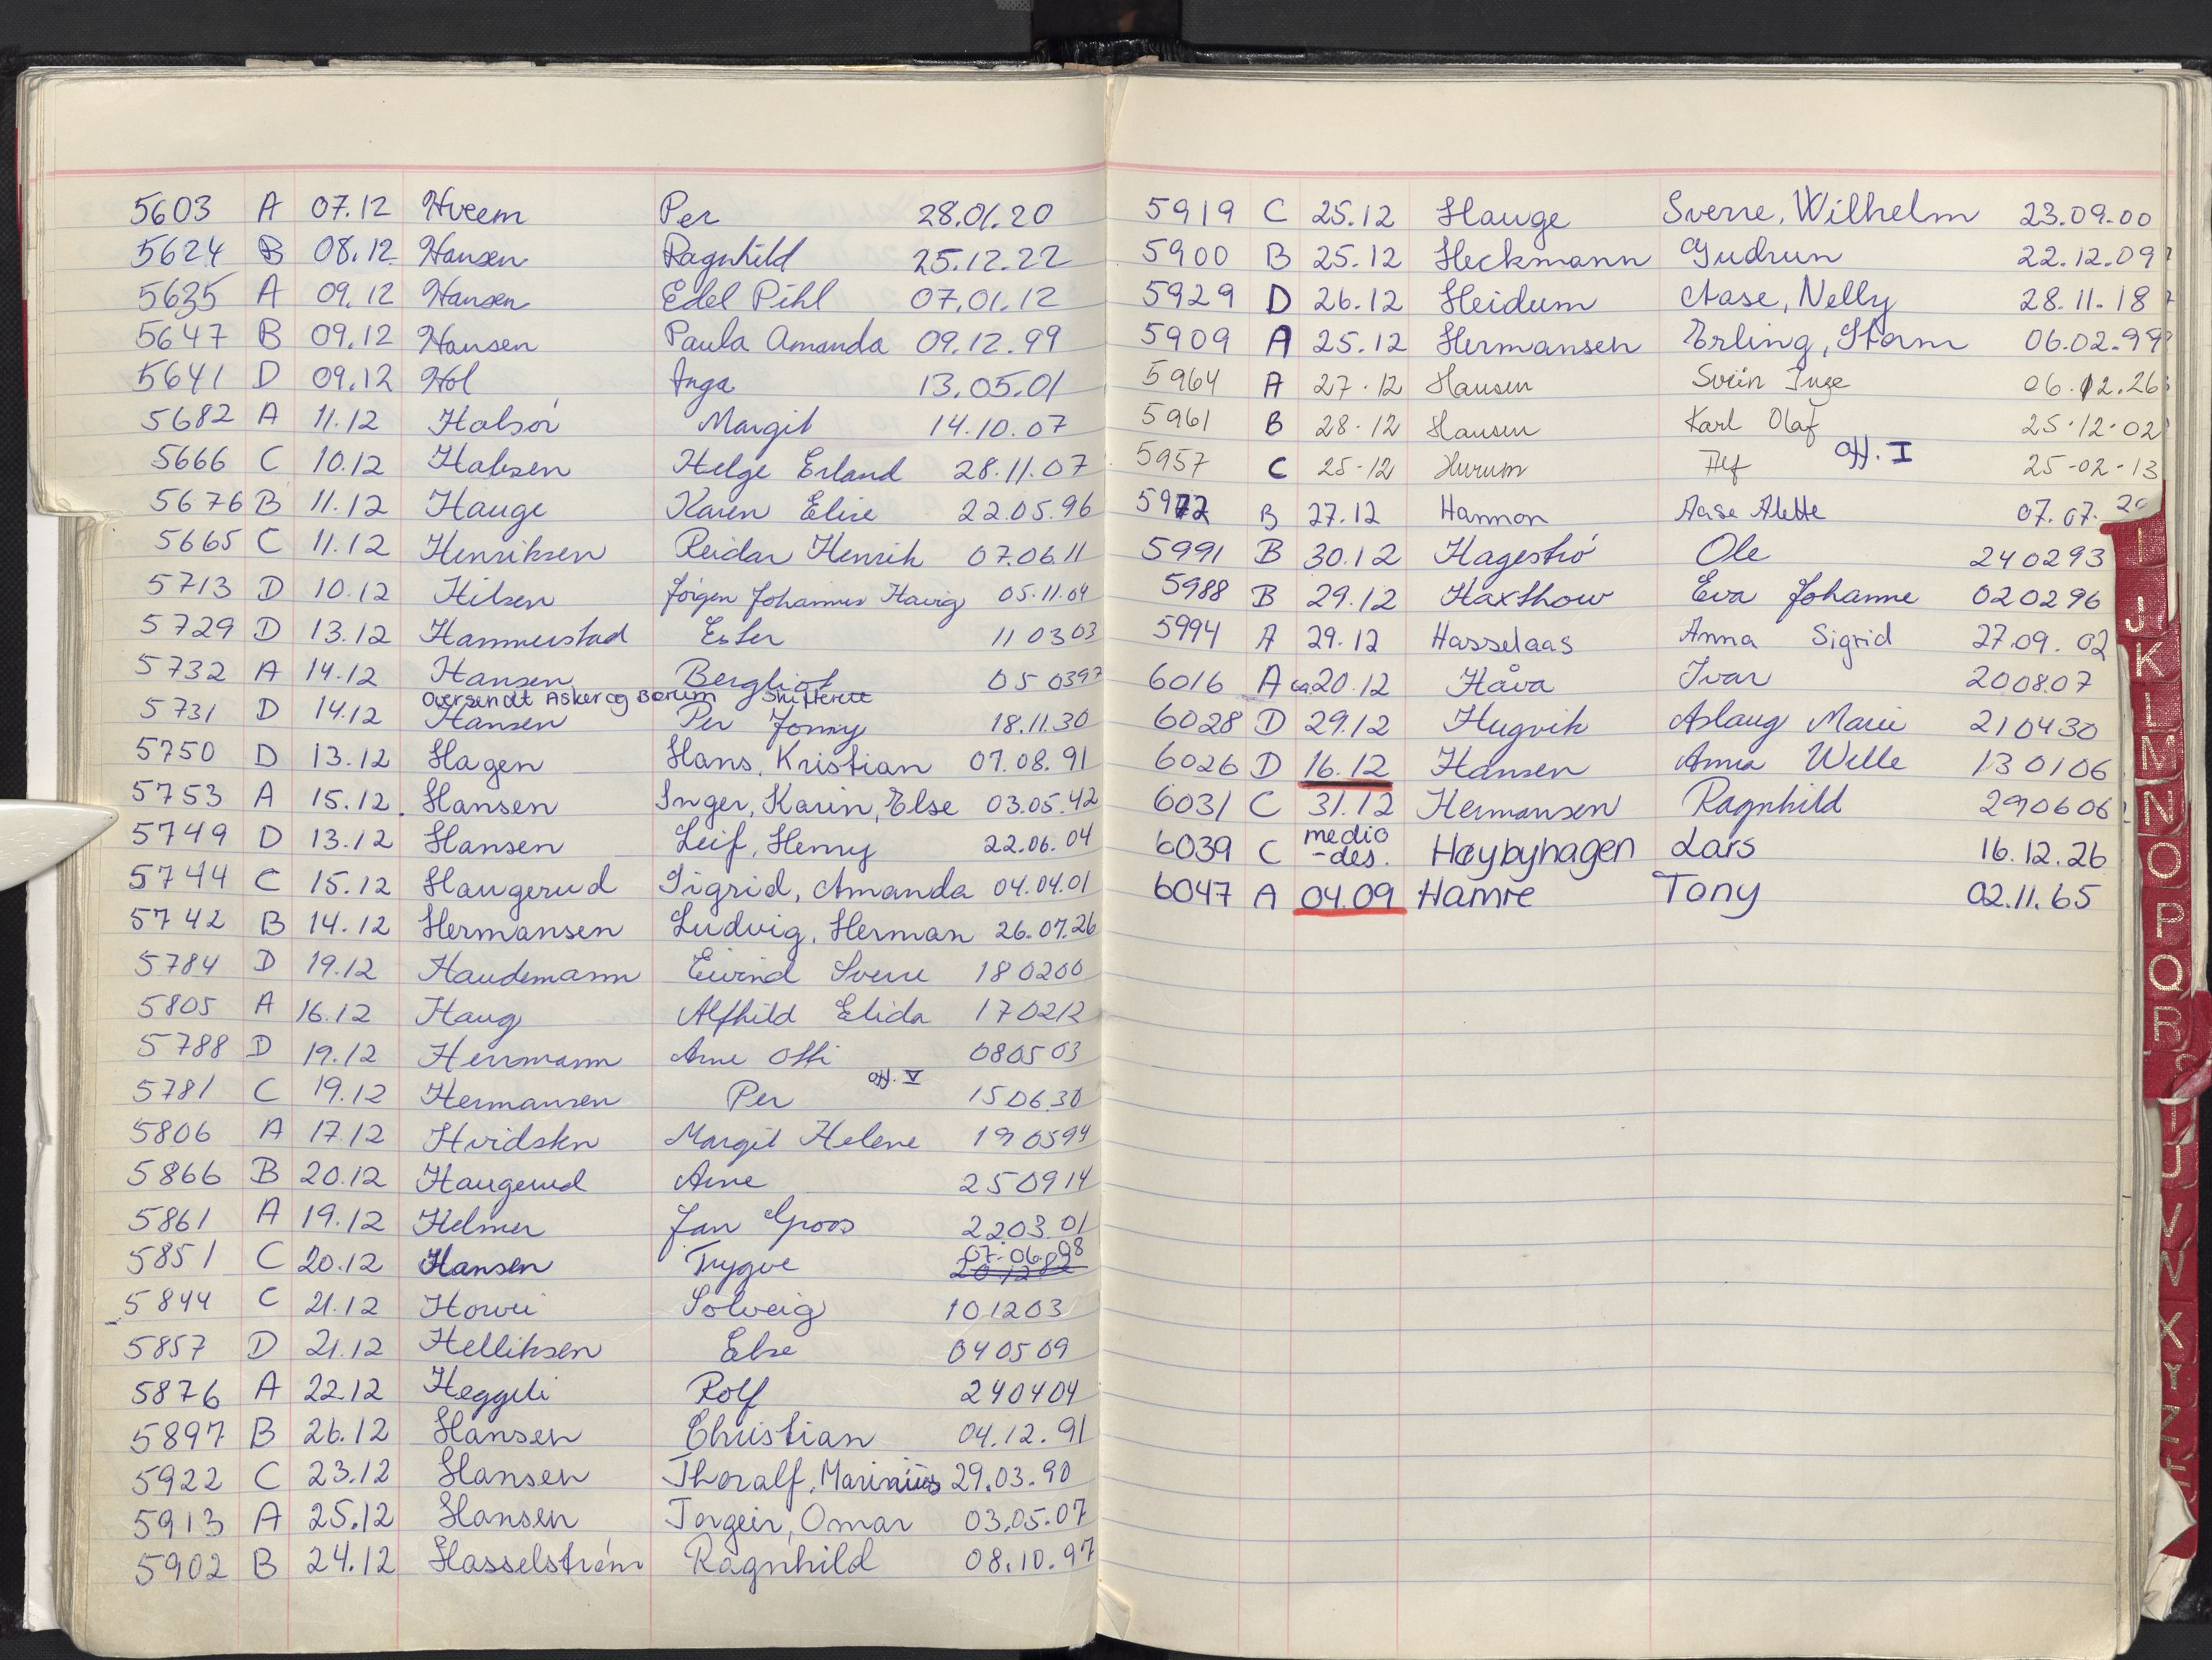 5603 A 07.12 Hveem Per 28.01.20
5624 B 08.12 Hansen Ragnhild 25.12.22
5635 A 09.12 Hansen Edel Pihl 07.01.12
5647 B 09.12 Hansen Paula Amanda 09.12.99
5641 D 09.12 Hol Inga 13.05.01
5682 A 11.12 Halsör Margit 14.10.07
5666 C 10.12 Halsen Helge Erland 28.11.07
5676 B 11.12 Hauge Karen Elise 22.05.96
5665 C 11.12 Henriksen Reidar Henrik 07.06.11
5713 D 10.12 Hilsen Jörgen Johannes Havig 05.11.04
5729 D 13.12 Hammerstad Ester 11 03 03
5732 A 14.12 Hansen Bergliot 05 0397
Oversendt Asker og Bærum Skifterett
5731 D 14.12 Hansen Per Jonny 18.11.30
5750 D 13.12 Hagen Hans, Kristian 07.08.91
5753 A 15.12. Hansen Inger, Karin, Else 03.05.42
5749 D 13.12 Hansen Leif, Henry 22.06.04
5744 C 15.12 Haugerud Sigrid, Amanda 04.04.01
5742 B 14.12 Hermansen Ludvig, Herman 26.07.26
5784 D 19.12 Haudemann Eivind Sverre 180200
5805 A 16.12 Haug Alfhild Elida 170212
5788 D 19.12 Herrmann Arne Otti 080503
off. V
5781 C 19.12 Hermansen Per 150630
5806 A 17.12 Hvidsten Margit Helene 190594
5866 B 20.12 Haugerud Arne 250914
5861 A 19.12 Helmer Jan Groos 2203 01
07-06-08
5851 C 20.12 Hansen Trygve
5844 C 21.12 Howri Solveig 101203
5857 D 21.12 Helliksen Else 040509
5876 A 22.12 Heggeli Rolf 240404
5897 B 26.12 Hansen Christian 04.12.91
5922 C 23.12 Hansen Thoralf, Marinius 29.03.90
5913 A 25.12 Hansen Torgeir, Omar 03.05.07
5902 B 24.12 Hasselström Ragnhild 08.10.97
5919 C 25.12 Hauge Sverre, Wilhelm 23.09.00
5900 B 25.12 Heckmann Gudrun 22.12.09
5929 D 26.12 Heidum Aase, Nelly 28.11.18
5909 A 25.12 Hermansen Erling, Storm 06.02.99
5964 A 27.12 Hansen Svein Inge 06.12.26
5961 B 28.12 Hansen Karl Olaf 25.12.02
off. I
5957 C 25-12 Hurum Alf 25-02-13
5972 B 27.12 Hannon Aase Alette 07.07.
5991 B 30.12 Hageströ Ole 240293
5988 B 29.12 Haxthow Eva Johanne 020296
5994 A 29.12 Hasselaas Anna Sigrid 27.09.02
6016 A ca 20.12 Håva Ivar 200807
6028 D 29.12 Hugvik Aslaug Marie 210430
6026 D 16.12 Hansen Anna Welle 130106
6031 C 31.12 Hermansen Ragnhild 290606
6039 C medio -des. Høybyhagen Lars 16.12.26
6047 A 04.09 Hamre Tony 02.11.65
I
J
K
L
M
N
O
P
Q
R
U
V
W
X
Y
Z